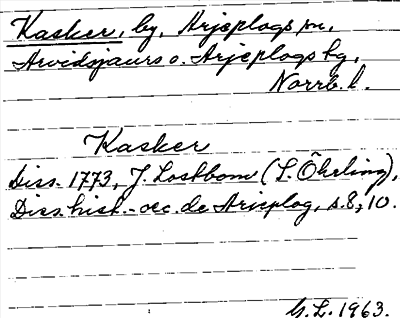 Kasker, by, Arjeplogs sn,
Arvidsjaurs o. Arjeplogs tg,
Norrb. l.
Kasker
Diss. 1773, J. Lostbom (L. Öhrling),
Diss. hist.-oec. de Arjeplog, s. 8, 10.
G. L. 1963.